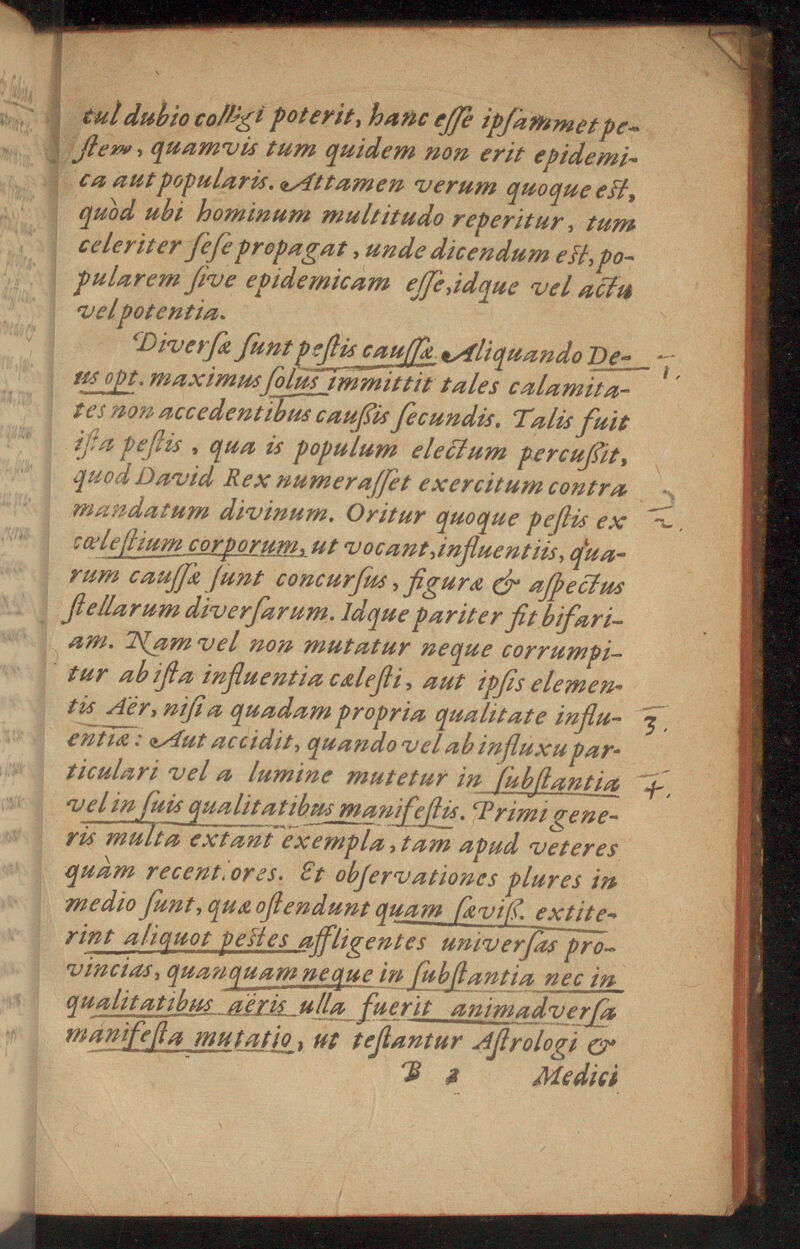 cul dubio colligi poterit, hanc eſſe ipſammet pe-
ſtem, quamvis tum quidem non erit epidemi-
ca aut popularis. Attamen verum quoque eſt,
quòd ubi hominum multitudo reperitur, tum
celeriter ſeſe propagat, unde dicendum eſt, po-
pularem ſive epidemicam eſſe, idque vel actu
vel potentia.
Diverſæ ſunt peſtis cauſſæ. Aliquando De- 1.
us opt. maximus ſolus immittit tales calamita-
tes non accedentibus cauſſis ſecundis. Talis fuit
iſta peſtis, qua is populum electum percuſſit,
quod David Rex numeraſſet exercitum contra
mandatum divinum. Oritur quoque peſtis ex 2.
cæleſtium corporum, ut vocant, influentiis, qua-
rum cauſſæ ſunt concurſus, figuræ & aſpectus
ſtellarum diverſarum. Idque pariter fit bifari-
am. Nam vel non mutatur neque corrumpi-
tur ab iſta influentia cæleſti, aut ipſis elemen-
tis Aër, niſi a quadam propria qualitate influ- 3.
entiæ: Aut accidit, quando vel ab influxu par-
ticulari vel a lumine mutetur in ſubſtantia 4.
vel in ſuis qualitatibus manifeſtis. Primi gene-
ris multa extant exempla, tam apud veteres
quàm recentiores. Et obſervationes plures in
medio ſunt, quæ oſtendunt quam ſæviſſ. extite-
rint aliquot peſtes affligentes univerſas pro-
vincias, quanquam neque in ſubſtantia nec in
qualitatibus aëris ulla fuerit animadverſa
manifeſta mutatio, ut teſtantur Aſtrologi &
B 2 Medici